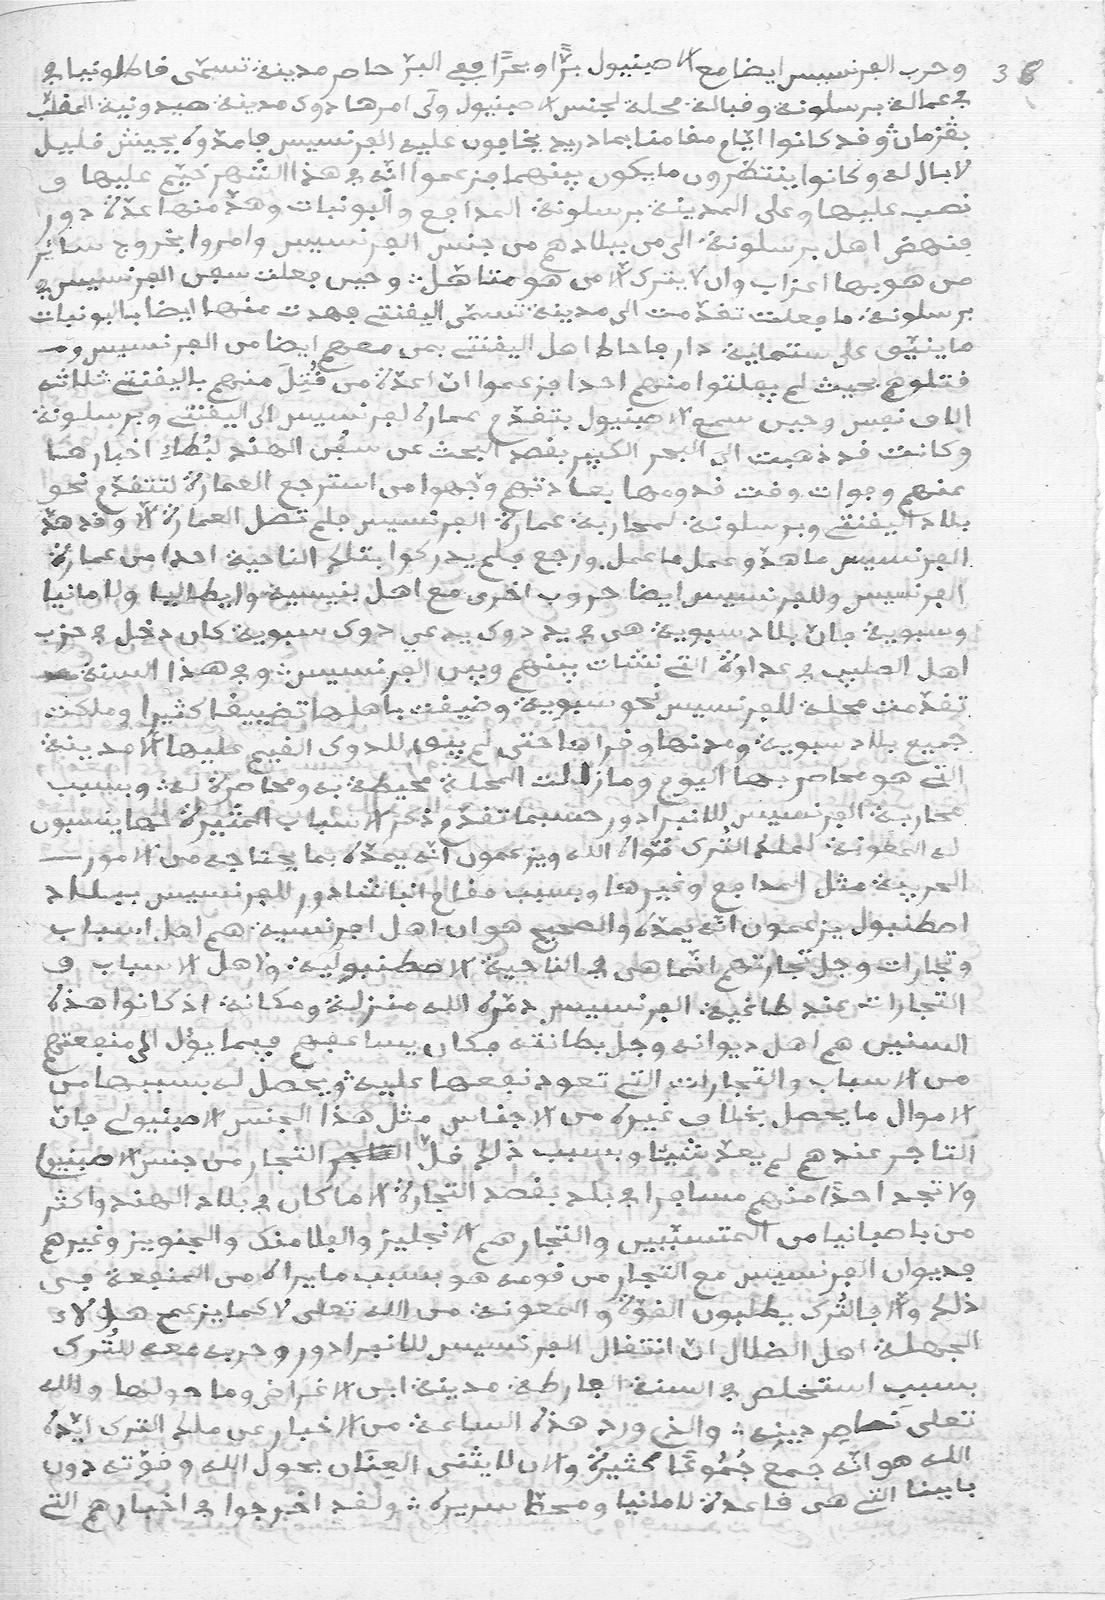 وحرب الفرنسيس ايضا مع الاصبنيول برًّا وبحرًا ففي البرّ حاصر مدينة تسمّى فاطلونيا و 38
في عمالة برسلونة وقبالة محلة لجنس الاصبنيول ولّى امرها دوك مدينة صيدونية
بڨزمان وقد كانوا ايّام مقامنا بمادريد يخافون عليه الفرنسيس فامدّوه بجيش قليل
لا بال له وكانوا ينتظرون ما يكون بينهما فزعموا انّه في هذا الشهر خيّم عليها و
نصب عليها وعلى المدينة برسلونة المدافع والبونبات وهدّ منها عدّة دور
فنهض اهل برسلونة الى من ببلادهم من جنس الفرنسيس وامروا بخروج سائر
من هو بها اعزاب وان لا يترك الّا من هو متاهّل وحين فعلت سفن الفرنسيس في
برسلونة ما فعلت تقدّمت الى مدينة تسمّى اليفنتي فهدت منها ايضا بالبونبات
ما ينيّف على ستماية دار فاحاط اهل اليفنتي بمن معهم ايضا من الفرنسيس و
قتلوهم بحيث لم يفلتوا منهم احدا فزعموا انّ عدّة من قُتِل منهم باليفنتي ثلاثة
الاف نفس وحين سمع الاصبنيول بتقدّم عمارة الفرنسيس الى اليفنتي وبرسلونة
وكانت قد ذهبت الى البحر الكبير بقصد البحث عن سفن الهند لبُطاء اخبارها
عنهم وفوات وقت قدومها بعادتهم وجّهوا من استرجع العمارة لتتقدّم نحو
بلاد اليفنتي وبرسلونة لمحاربة عمارة الفرنسيس فلم تصل العمارة الّا وقد هدّ
الفرنسيس ما هدّ وعمل ما عمل ورجع فلم يدركوا بتلك الناحية احدا من عمارة
الفرنسيس وللفرنسيس ايضا حروب اخرى مع اهل بنيسية وايطاليا ولامانيا
وسبوية فانّ بلاد سبوية هي في يد دوك يدعي دوك سبوية كان دخل في حزب
اهل الصليب في عداوة التي نشات بينهم وبين الفرنسيس وفي هذا السنة
تقدّمت محلة للفرنسيس نحو سبوية وضيفت باهلها تضييفًا كثيرا وملكت
جميع بلاد سبوية ومدنها وقراها حتى لم يبق للدوك الفيم عليها الّا مدينة
التي هو محاصر بها اليوم وما زالت المحلة محيطة به ومحاصرة له وبسبب
محاربة الفرنسيس للانبرادور حسبما تقدّم ذكر الاسباب المثيرة لها ينسبون
له المعونة لملك التُرك قوّاه الله ويزعمون انّه يمدّه بما يحتاجه من الامور
الحربية مثل المدافع وغيرها وبسبب مقام انباشادور للفرنسيس ببلاد
اصطنبول يزعمون انّه يمدّه والصحيح هو ان اهل افرنسية هم اهل اسباب
وتجارات وجل تجارتهم انّما هي في الناحية الاصطنبولية ولاهل الاسباب و
التجارات عند طاغية الفرنسيس دمّره الله منزلة ومكانة اذ كانوا هذه
السنين هم اهل ديوانه وجل بطانته فكان يساعفهم فيما يؤل الى منفعتهم
من الاسباب والتجارات التي تعود نفعها عليه ويحصل له بسببها من
الاموال ما يحصل بخلاف غيره من الاجناس مثل هذا الجنس الاصبنيولي فانّ
التاجر عندهم لم يعدّ شيئا وبسبب ذلك قلّ التجار من جنس الاصبنيول
ولا تجد احدًا منهم مسافرا في بلد بقصد التجارة الّا ما كان في بلاد الهند واكثر
من باصبانيا من المتسبّبين والتجار هم الانجليز والفلامنك والجنويز وغيرهم
فديوان الفرنسيس مع التجار من قومه هو بسبب ما يراه من المنفعة في
ذلك والّا فالتُرك يطلبون القوّة والمعونة من الله تعلى لا كما يزعم هؤلاء
الجهلة اهل الضلال انّ انتقال الفرنسيس للانبرادور وحربه معه للتُرك
بسبب استخلص في السنة الفارطة مدينة ابن الاغراض وما حولها والله
تعلى ناصر دينه والذي ورد هذه الساعة من الاخبار عن ملك الترك ايّده
الله هو انّه جمع جُمُوعًا كثيرة والان لا يثنى العِنَان بحول الله وقوّته دون
بايينا التي هي قاعدة لامانيا ومحطّ سريره ولقد اخرجوا في اخبارهم التي